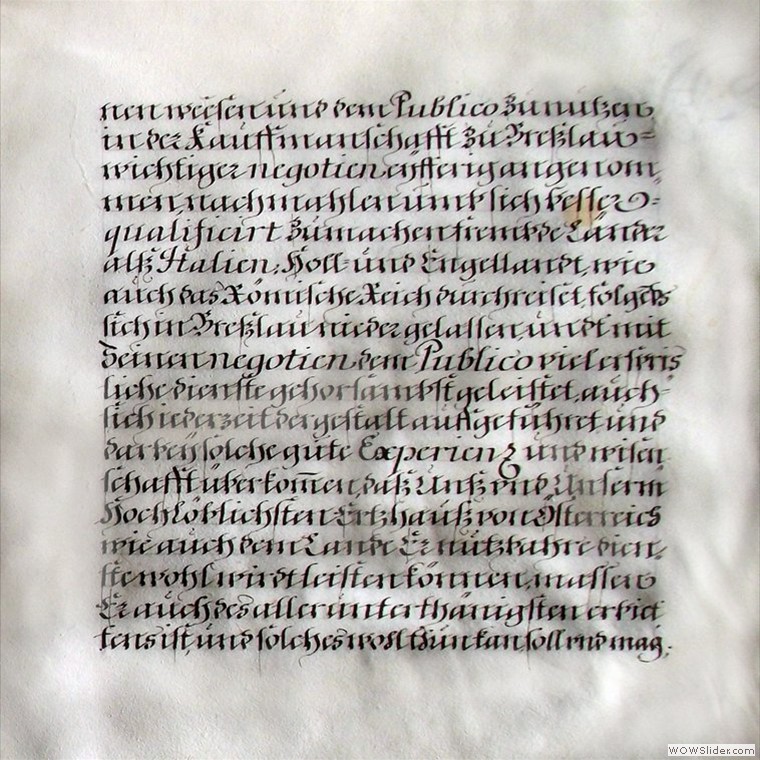 nen weesen und dem Publico zu nutzen
in der Kauffmanschafft zu Breßlau=
wichtiger negotien eyfferig angenom,
men, nachmahlen umb sich besser=
qualificirt zu machen frembde Länder
alß Italien, Holl= und Engellandt, wie
auch das Römische Reich durchreiset, folgends
sich in Breßlau nieder gelassen, undt mit
seinen negotien dem Publico viel erspris
liche dienste gehorsambst geleistet, auch=
sich iederzeit dergestalt auffgeführet, und
darbey solche gute Experienz und wisen
schafft überkom̄en, daß Unß und Unserm
Hoch Löblichsten Ertzhauß von Österreich
wie auch dem Lande Er nutzbahre dien,
ste wohl wirdt leisten können, massen
Er auch des allerunterthänigsten erbiet
tens ist, und solches wohl thun kan, soll und mag,
WOWSlider.com